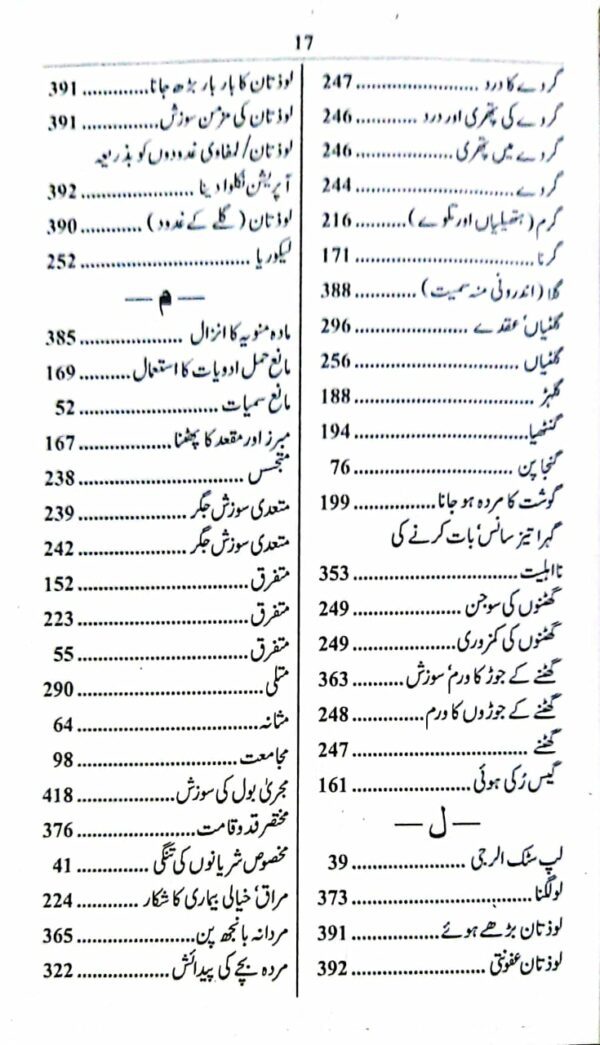 17
گردے کا درد ........................ 247
گردے کی پتھری اور درد ............ 246
گردے میں پتھری .................... 246
گردے ............................... 244
گرم (ہتھیلیاں اور تلوے) .......... 216
گرنا ................................ 171
گلا (اندرونی منہ سمیت) ............ 388
گلٹیاں٬ عقدے ...................... 296
گلٹیاں .............................. 256
گلہڑ ................................ 188
گنٹھیا ............................... 194
گنجا پن ............................. 76
گوشت کا مردہ ہو جانا ............... 199
گہرا تیز سانس٬ بات کرنے کی
نااہلیت ............................. 353
گھٹنوں کی سوجن ................... 249
گھٹنوں کی کمزوری .................. 249
گھٹنے کے جوڑ کا ورم٬ سوزش ........ 363
گھٹنے کے جوڑوں کا ورم ............. 248
گھٹنے ............................... 247
گیس رُکی ہوئی ...................... 161
— ل —
لپ سٹک الرجی ..................... 39
لو لگنا .............................. 373
لوذتان بڑھے ہوئے .................. 391
لوذتان عفونتی ....................... 392
لوذتان کا بار بار بڑھ جانا ............. 391
لوذتان کی مزمن سوزش .............. 391
لوذتان/ لمفاوی غدودوں کو بذریعہ
آپریشن نکلوا دینا .................... 392
لوذتان (گلے کے غدود) ............ 390
لیکوریا .............................. 252
— م —
مادہ منویہ کا انزال ................... 385
مانع حمل ادویات کا استعمال .......... 169
مانع سمیات ......................... 52
مبرز اور مقعد کا پھٹنا ................. 167
متجسس ............................. 238
متعدی سوزش جگر ................... 239
متعدی سوزش جگر ................... 242
متفرق .............................. 152
متفرق .............................. 223
متفرق .............................. 55
متلی ................................ 290
مثانہ ................................ 64
مجامعت ............................. 98
مجریٰ بول کی سوزش ................. 418
مختصر قد و قامت ..................... 376
مخصوص شریانوں کی تنگی ............. 41
مراق٬ خیالی بیماری کا شکار ........... 224
مردانہ بانجھ پن ...................... 365
مردہ بچے کی پیدائش ................. 322